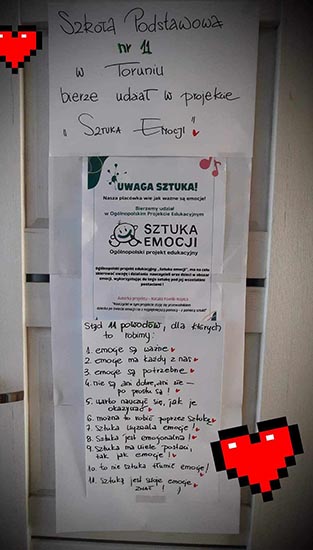 Szkoła Podstawowa
nr 11
w Toruniu
bierze udział w projekcie
"Sztuka Emocji"
UWAGA SZTUKA!
Nasza placówka wie jak ważne są emocje!
Bierzemy udział
w Ogólnopolskim Projekcie Edukacyjnym
SZTUKA
EMOCJI
Ogólnopolski projekt edukacyjny
Ogólnopolski projekt edukacyjny „Sztuka emocji”, ma na celu
Stąd 11 powodów, dla których
to robimy:
1. emocje są ważne
2. emocje ma każdy z nas
3. emocje są potrzebne
4. nie są ani dobre, ani złe –
po prostu są!
5. warto nauczyć się, jak je
okazywać
6. można to robić poprzez sztukę
7. Sztuka wyzwala emocje!
8. Sztuka jest emocjonalna!
9. Sztuka ma wiele postaci,
tak jak emocje!
10. to nie sztuka tłumić emocje!
11. Sztuką jest swoje emocje
znać!